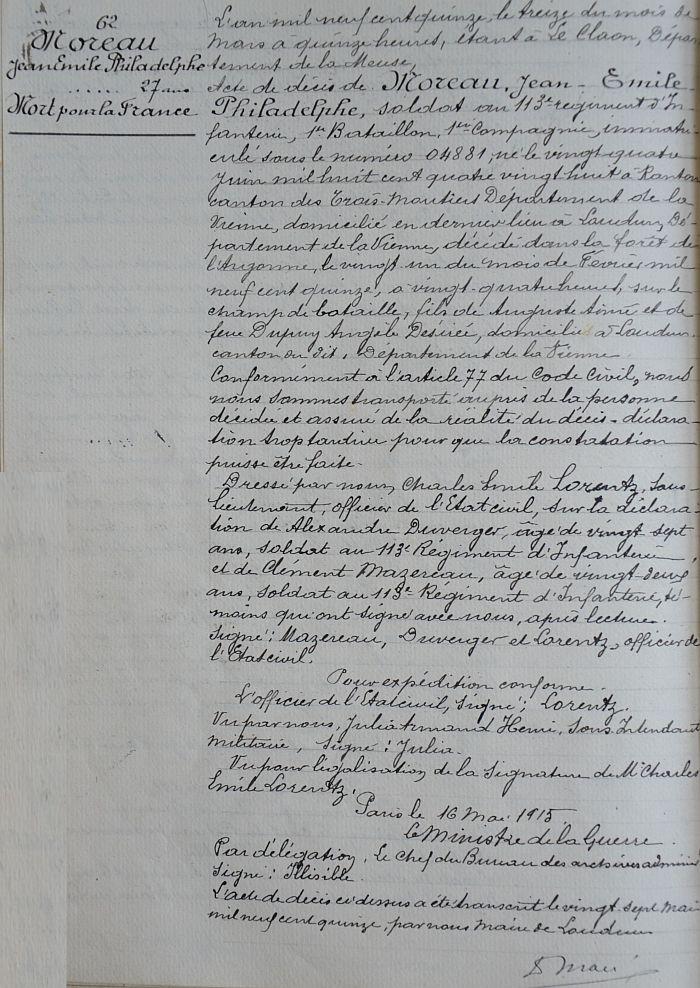 62
Moreau
Jean Emile Philadelphe
...... 27 ans
Mort pour la France
L'an mil neuf cent quinze, le treize du mois de
Mars à quinze heures, étant à Le Claon, Dépar
tement de la Meuse,
Acte de décès de Moreau, Jean - Emile
Philadelphe, soldat au 113e régiment d'In
fanterie, 1er Bataillon, 1ere Compagnie, immatri
culé sous le numéro 04881, né le vingt quatre
Juin mil huit cent quatre vingt huit à Ranton
canton des Trois-Moutiers Département de la
Vienne, domicilié en dernier lieu à Loudun, Dé-
partement de la Vienne, décédé dans la forêt de
l'Argonne, le vingt un du mois de Février mil
neuf cent quinze, à vingt-quatre heures, sur le
champ de bataille, fils de Auguste Aimé et de
feue Dupuy Angèle Désirée, domiciliés à Loudun
canton du dit, Département de la Vienne.
Conformément à l'article 77 du Code Civil, nous
nous sommes transporté auprès de la personne
décédée et assuré de la réalité du décès - déclara-
tion trop tardive pour que la constatation
puisse être faite.
Dressé par nous, Charles Emile Lorentz, Sous-
Lieutenant, officier de l'Etat civil, sur la déclara-
tion de Alexandre Duverger, âgé de vingt sept
ans, soldat au 113e Régiment d'Infanterie,
et de Clément Mazereau, âgé de vingt-
ans, soldat au 113e Régiment d'Infanterie, té-
moins qui ont signé avec nous, après lecture.
Signé: Mazereau, Duverger et Lorentz, officier de
l'Etat civil.
Pour expédition conforme.
L'officier de l'Etat civil, signé: Lorentz.
Vu par nous, Julia Armand Henri, Sous Intendant
militaire, signé: Julia.
Vu pour légalisation de la signature de Mr Charles
Emile Lorentz.
Paris le 16 Mai 1915
Le Ministre de la Guerre.
Par délégation, Le Chef du Bureau des archives admini
Signé: Illisible.
L'acte de décès ci dessus a été transcrit le vingt-sept Mai
mil neuf cent quinze, par nous Maire de Loudun